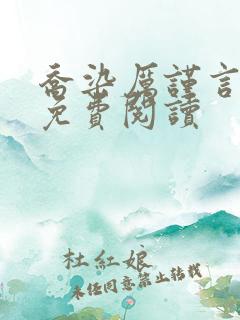 喬染厲謹言
免費閱讀
杜紅娘
未經同意禁止轉載